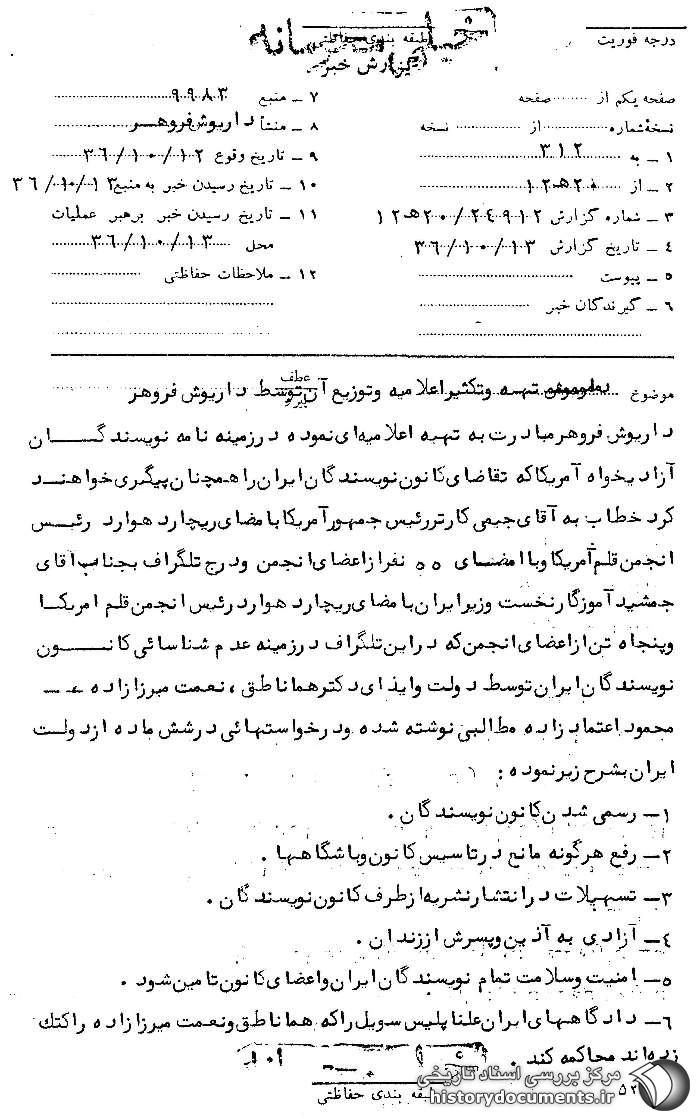 خیلی محرمانه
طبقه بندی حفاظتی
درجه فوریت
گزارش خبر
صفحه یکم از ........ صفحه
نسخهٔ شماره ........ از ........ نسخه
۱ ـ به ۳۱۲
۲ ـ از ۲۰هـ۱۲
۳ ـ شماره گزارش ۲۰/۲۴۹۱۲هـ۱۲
۴ ـ تاریخ گزارش ۳۶/۱۰/۱۳
۵ ـ پیوست
۶ ـ گیرندگان خبر
۷ ـ منبع ۹۹۸۳
۸ ـ منشأ داریوش فروهر
۹ ـ تاریخ وقوع ۳۶/۱۰/۱۲
۱۰ ـ تاریخ رسیدن خبر به منبع ۳۶/۱۰/۱۳
۱۱ ـ تاریخ رسیدن خبر برهبر عملیات
محل ۳۶/۱۰/۱۳
۱۲ ـ ملاحظات حفاظتی
موضوع تهیه وتکثیر اعلامیه وتوزیع آن توسط داریوش فروهر
عطف
پیرو
داریوش فروهر مبادرت به تهیه اعلامیه‌ای نموده درزمینه نامه نویسندگان
آزادیخواه آمریکا که تقاضای کانون نویسندگان ایران را همچنان پیگیری خواهند
کرد خطاب به آقای جیمی کارتر رئیس جمهور آمریکا با مضای ریچارد هوارد رئیس
انجمن قلم آمریکا وبا امضای ۵۵ نفر از اعضای انجمن ودرج تلگراف بجناب آقای
جمشید آموزگار نخست وزیر ایران با مضای ریچارد هوارد رئیس انجمن قلم امریکا
وپنجاه تن از اعضای انجمن که دراین تلگراف درزمینه عدم شناسائی کانون
نویسندگان ایران توسط دولت وایذای دکتر هما ناطق ، نعمت میرزا زاده ـ
محمود اعتماد زاده مطالبی نوشته شده ودرخواستهائی درشش ماده ازدولت
ایران بشرح زیر نموده :
۱ـ رسمی شدن کانون نویسندگان .
۲ـ رفع هرگونه مانع درتاسیس کانون وباشگاهها .
۳ـ تسهیلات درانتشار نشریه ازطرف کانون نویسندگان .
۴ـ آزادی به آذین وپسرش اززندان .
۵ـ امنیت وسلامت تمام نویسندگان ایران واعضای کانون تامین شود .
۶ـ دادگاههای ایران علنا پلیس سویل راکه هما ناطق ونعمت میرزا زاده راکتک
زده‌اند محاکمه کند .
طبقه بندی حفاظتی
۵۲
مرکز بررسی اسناد تاریخی
historydocuments.ir